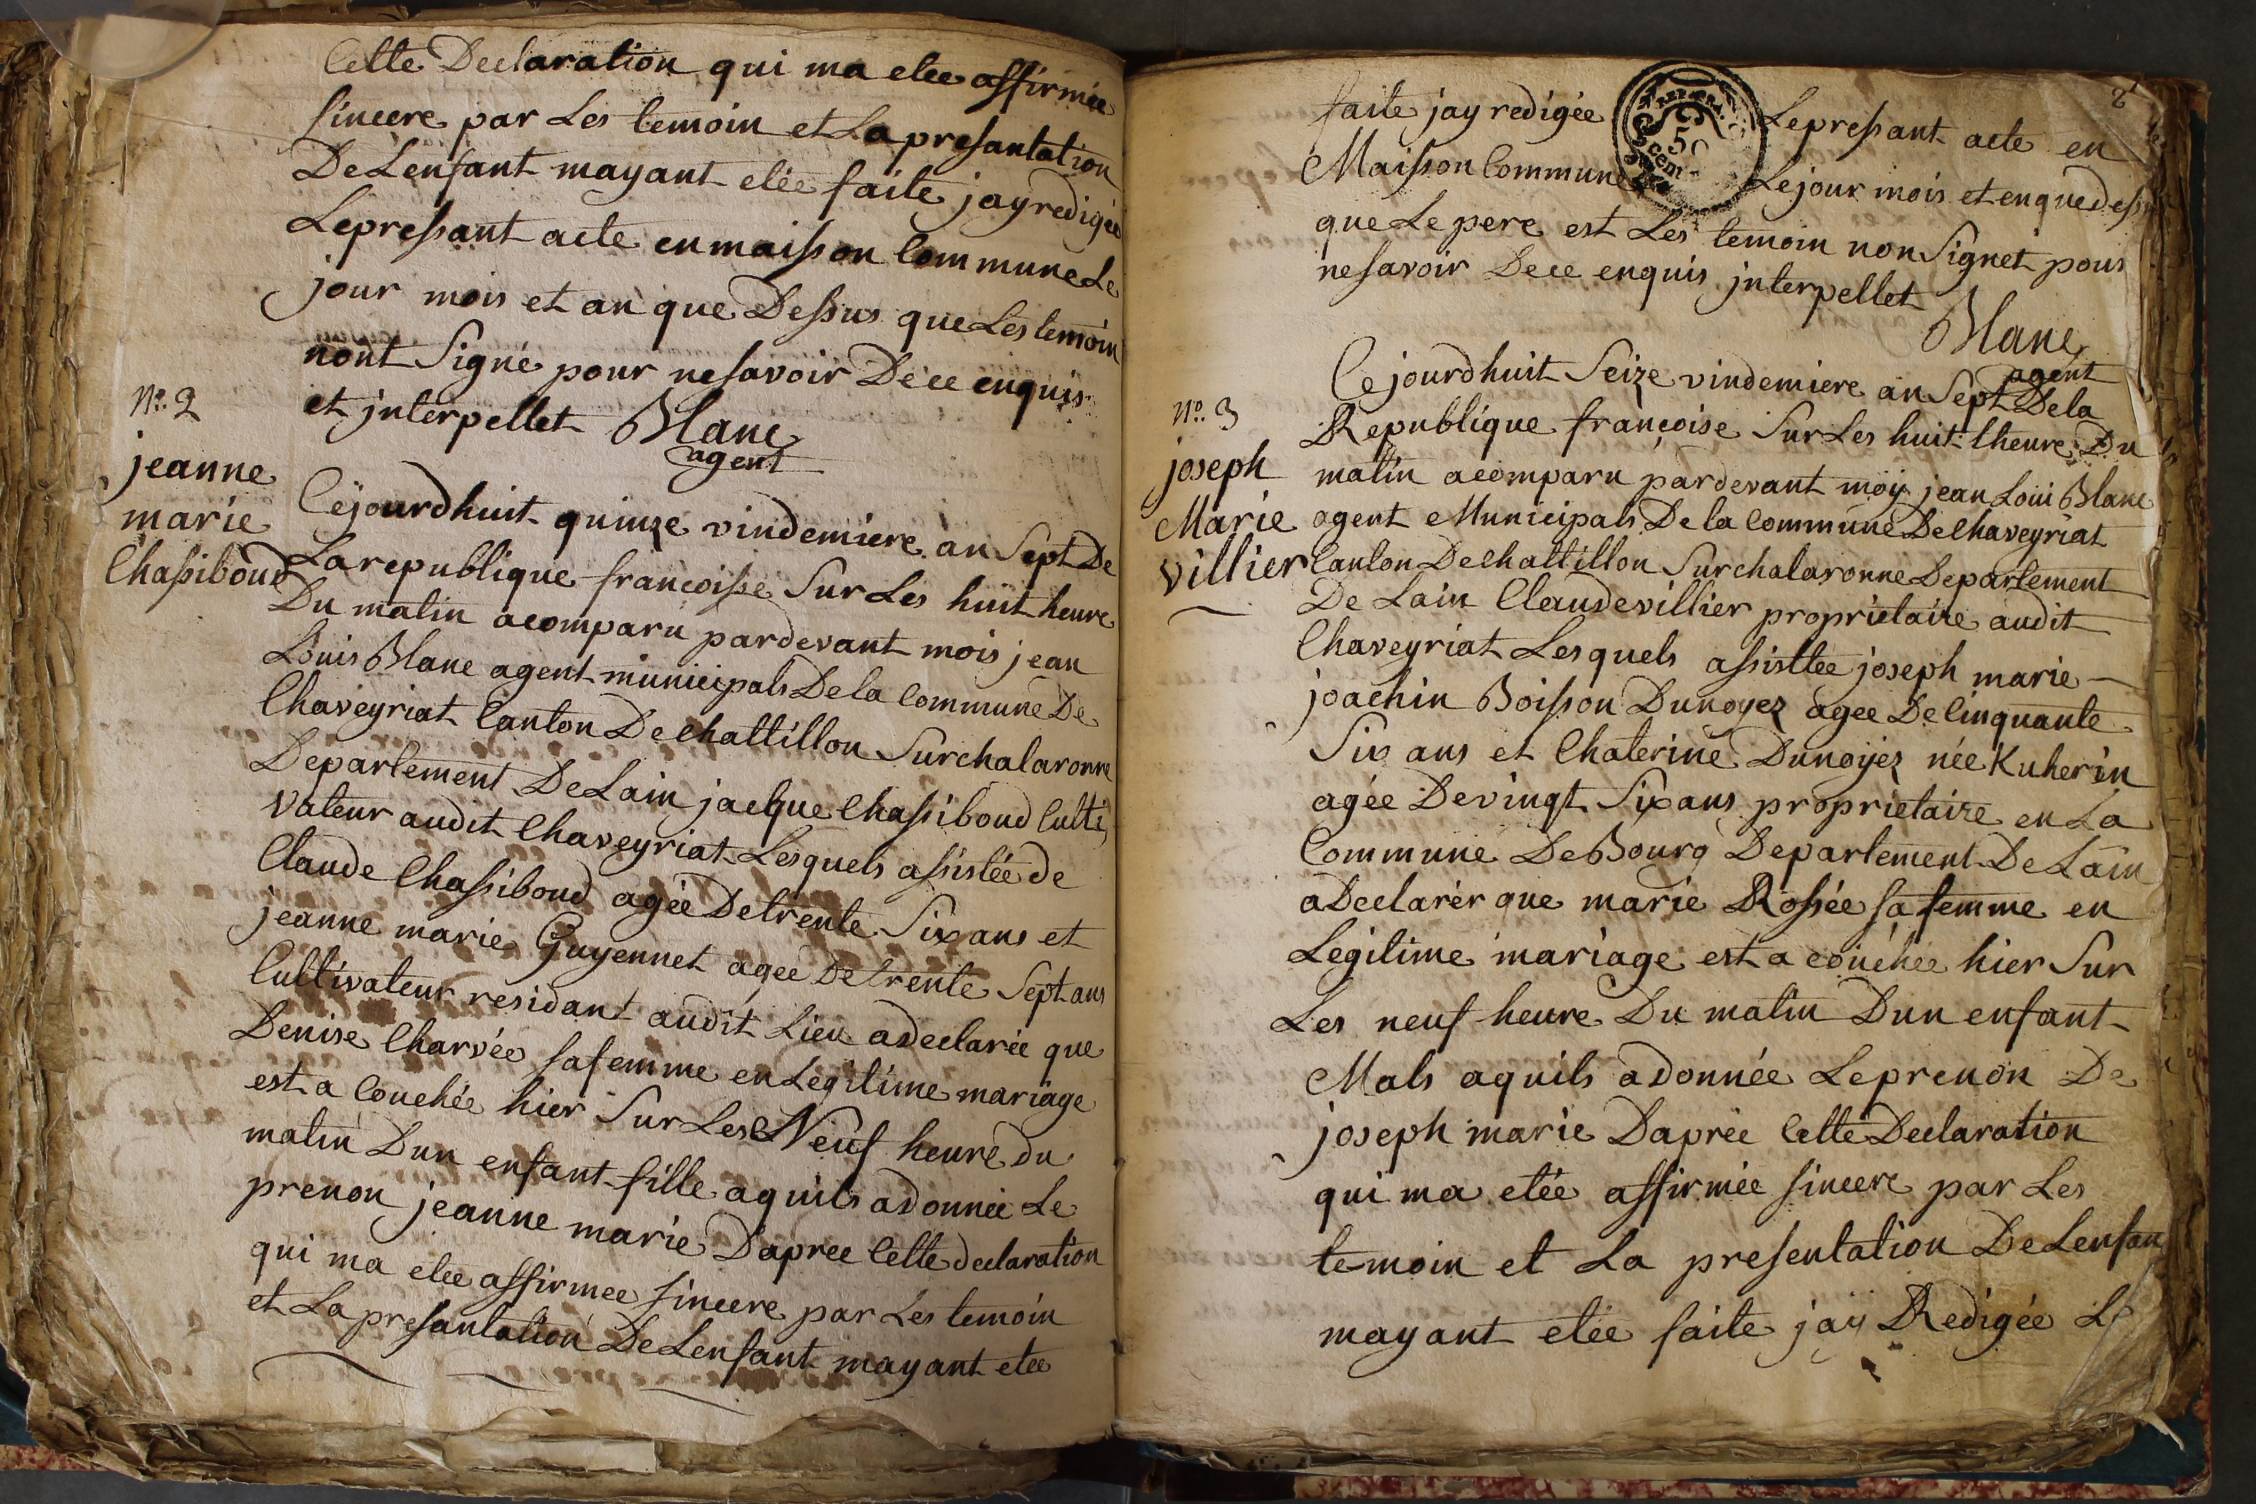 Cette Declaration qui ma etee affirmée
sincere par Les temoin et La presantation
De Lenfant mayant etée faite jay redigée
Le pressant acte en maisson Commune Le
jour mois et an que Dessus que Les temoin
nont Signé pour ne savoir De ce enquis
et jnterpellet Blanc
agent
No. 2
jeanne
marie
Chassiboud
Cejourdhuit quinze vindemiere an Sept De
La republique francoisse Sur Les huit heure
Du matin acomparu pardevant mois jean
Louis Blanc agent municipals De la Commune De
Chaveyriat Canton De Chattillon Surchalaronne
Departement De Lain jacque Chassiboud Culti
vateur audit Chaveyriat Lesquels assistée de
Claude Chassiboud agée De trente Six ans et
jeanne marie Guyennet agee De trente Sept ans
Cultivateur residant audit Lieu a declarée que
Denise Charvée sa femme en Legitime mariage
est a Couchée hier Sur Les Neuf heure du
matin Dun enfant fille aquils a donnée Le
prenon jeanne marie Dapree Cette declaration
qui ma etee affirmee sincere par Les temoin
et La presantation De Lenfant mayant etee
8
faite jay redigée Le pressant acte en
Maisson Commune Le jour mois et en que dessus
que Le pere est Les temoin non Signet pour
ne savoir De ce enquis jnterpellet
Blanc
agent
No. 3
joseph
Marie
villier
Cejourdhuit Seize vindemiere an Sept De la
Republique françoise Sur Les huit lheure Du
matin acomparu pardevant moy jean Loui Blanc
agent Municipals De la Commune De Chaveyriat
Canton De Chattillon Surchalaronne Departement
De Lain Claude villier proprietaire audit
Chaveyriat Lesquels assistée joseph marie
joachin Boisson Dunoyez agee De Cinquante
Six ans et Chaterine Dunoyez née Kuherin
agée De vingt Six ans proprietaire en La
Commune De Bourg Departement De Lain
a Declarér que marie Rossée sa femme en
Legitime mariage est a couchée hier Sur
Les neuf heure Du matin Dun enfant
Mals aquils a donnée Le prenon De
joseph marie Daprée Cette Declaration
qui ma etée affirmée sincere par Les
temoin et La presentation De Lenfan
mayant etée faite jay Redigée Le